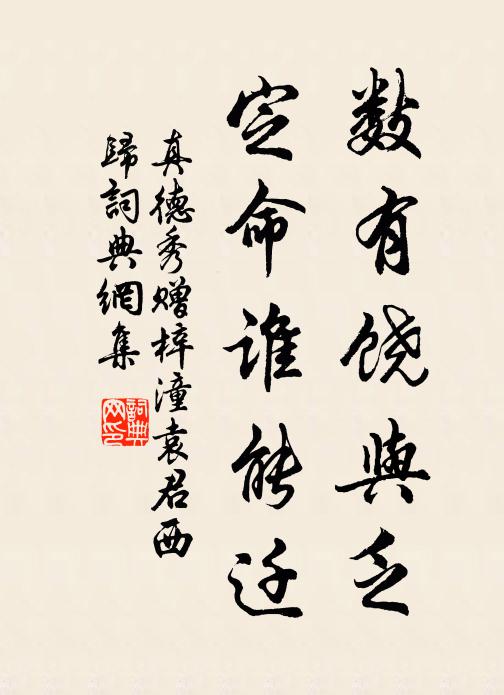 数有饶與乏
定命谁能迁
真德秀赠梓潼袁君西
歸詞典網集
詞典网印